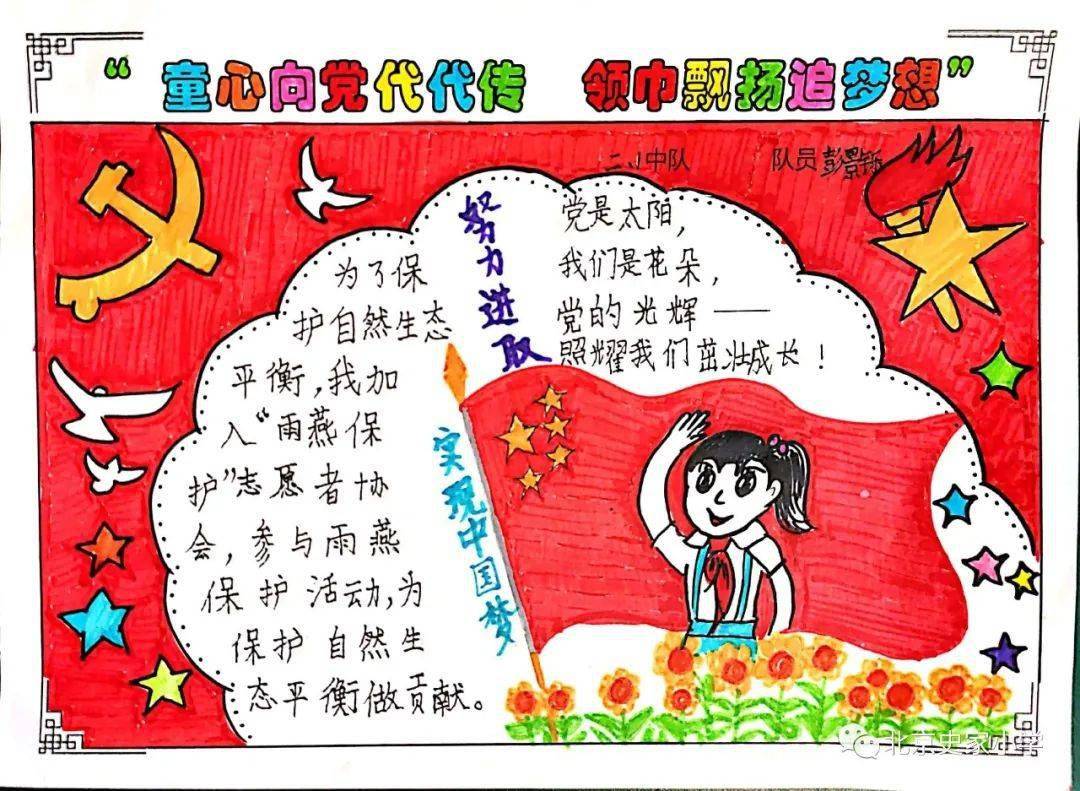 “童心向党代代传 领巾飘扬追梦想”
二.1中队 队员彭景铄
为了保
护自然生态
平衡，我加
入“雨燕保
护”志愿者协
会，参与雨燕
保护活动，为
保护自然生
态平衡做贡献。
努力进取
实现中国梦
党是太阳，
我们是花朵，
党的光辉——
照耀我们茁壮成长！
北京史家小学